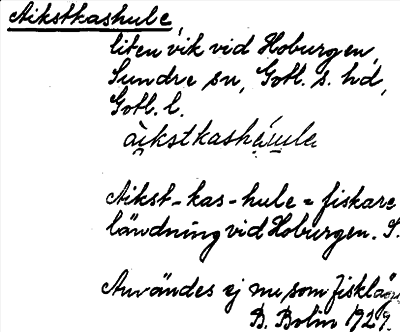 Aikstkashule,
liten vik vid Hoburgen,
Sundre sn, Gotl. s. hd,
Gotl. l.
àikstkashá̱u̱le
Aikst-kas-hule = fiskare
ländning vid Hoburgen. S.
Användes ej nu som fiskläge.
B. Bolin 1929.